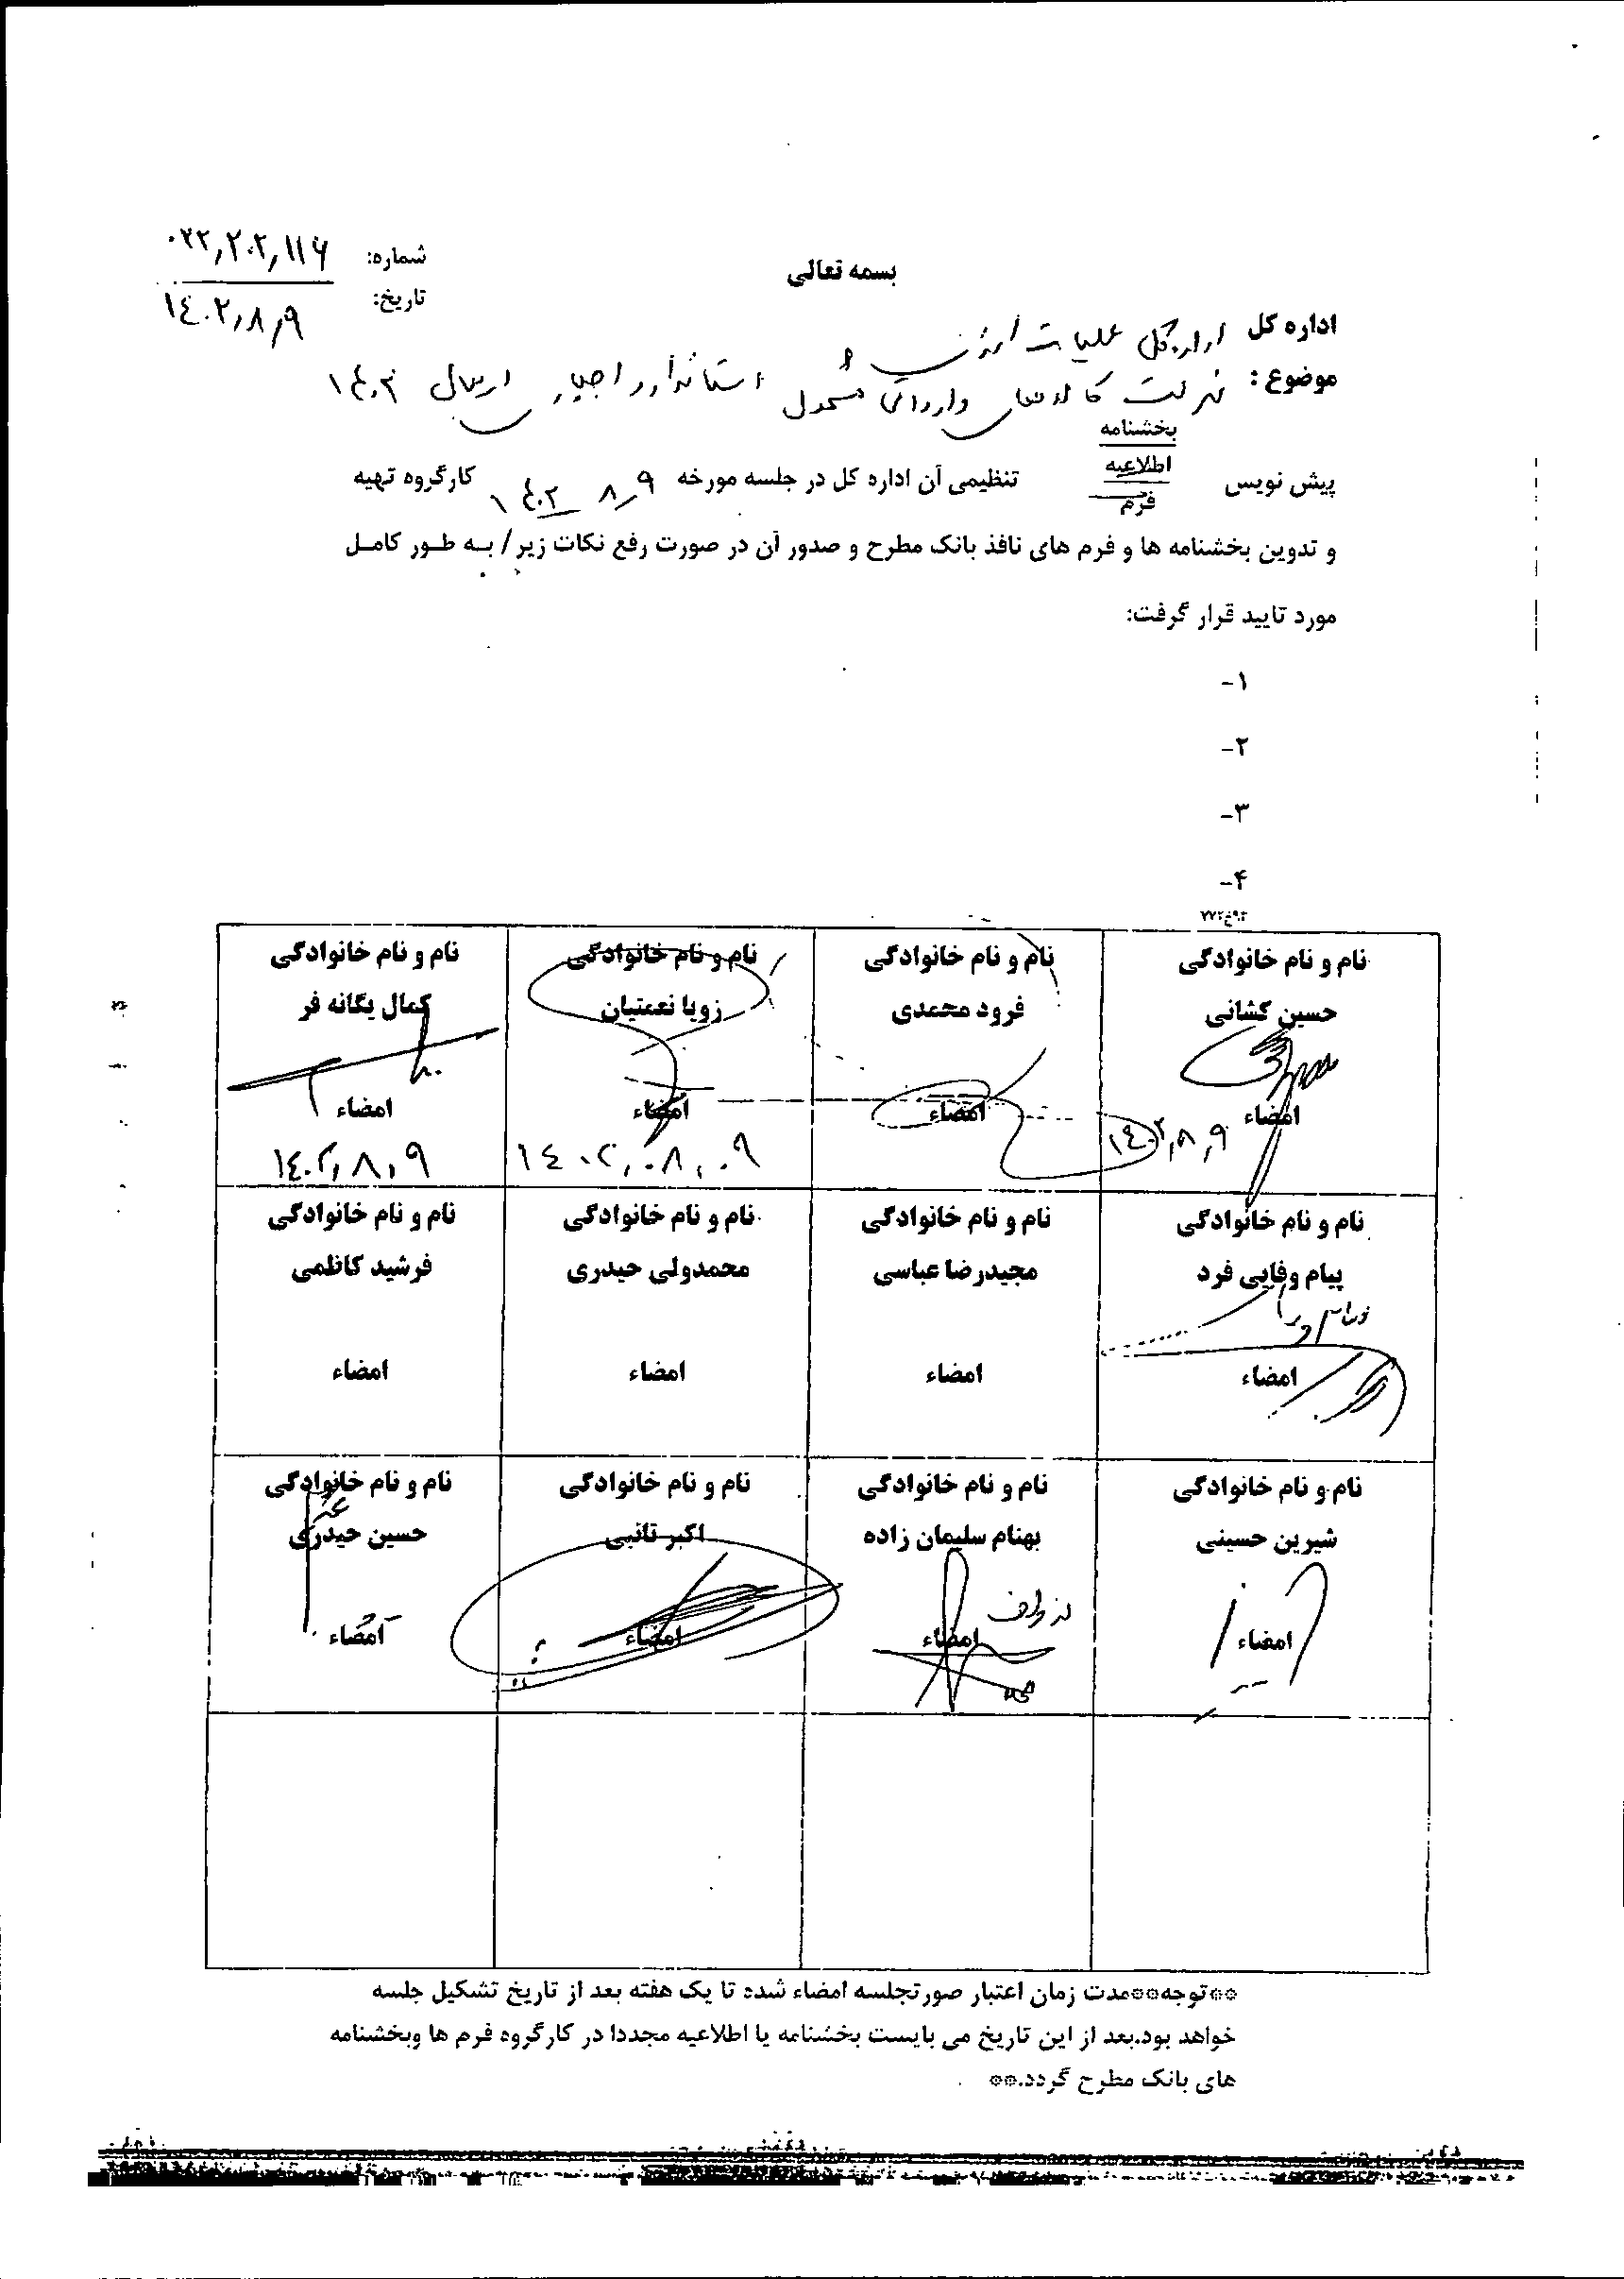 بسمه تعالی
شماره: ۰۲۲,۲۰۲,۱۱۶
تاریخ: ۱۴۰۲,۸,۹
اداره کل اداره کل عملیات ارزی
موضوع: فهرست کالاهای وارداتی مشمول استاندارد اجباری در سال ۱۴۰۲
بخشنامه
پیش نویس اطلاعیه تنظیمی آن اداره کل در جلسه مورخه ۱۴۰۲_۸_۹ کارگروه تهیه
فرم
و تدوین بخشنامه ها و فرم های نافذ بانک مطرح و صدور آن در صورت رفع نکات زیر/ بـه طـور کامـل
مورد تایید قرار گرفت:
۱-
۲-
۳-
۴-
نام و نام خانوادگی نام و نام خانوادگی نام و نام خانوادگی نام و نام خانوادگی
حسین کشانی فرود محمدی زویا نعمتیان کمال یگانه فر
امضاء امضاء امضاء امضاء
۱۴۰۲,۸,۹ ۱۴۰۲,۰۸,۰۹ ۱۴۰۲,۸,۹
نام و نام خانوادگی نام و نام خانوادگی نام و نام خانوادگی نام و نام خانوادگی
پیام وفایی فرد مجیدرضا عباسی محمدولی حیدری فرشید کاظمی
امضاء امضاء امضاء امضاء
نام و نام خانوادگی نام و نام خانوادگی نام و نام خانوادگی نام و نام خانوادگی
شیرین حسینی بهنام سلیمان زاده اکبر تائبی حسین حیدری
از طرف
امضاء امضاء امضاء امضاء
**توجه**مدت زمان اعتبار صورتجلسه امضاء شده تا یک هفته بعد از تاریخ تشکیل جلسه
خواهد بود.بعد از این تاریخ می بایست بخشنامه یا اطلاعیه مجددا در کارگروه فرم ها وبخشنامه
های بانک مطرح گردد.**